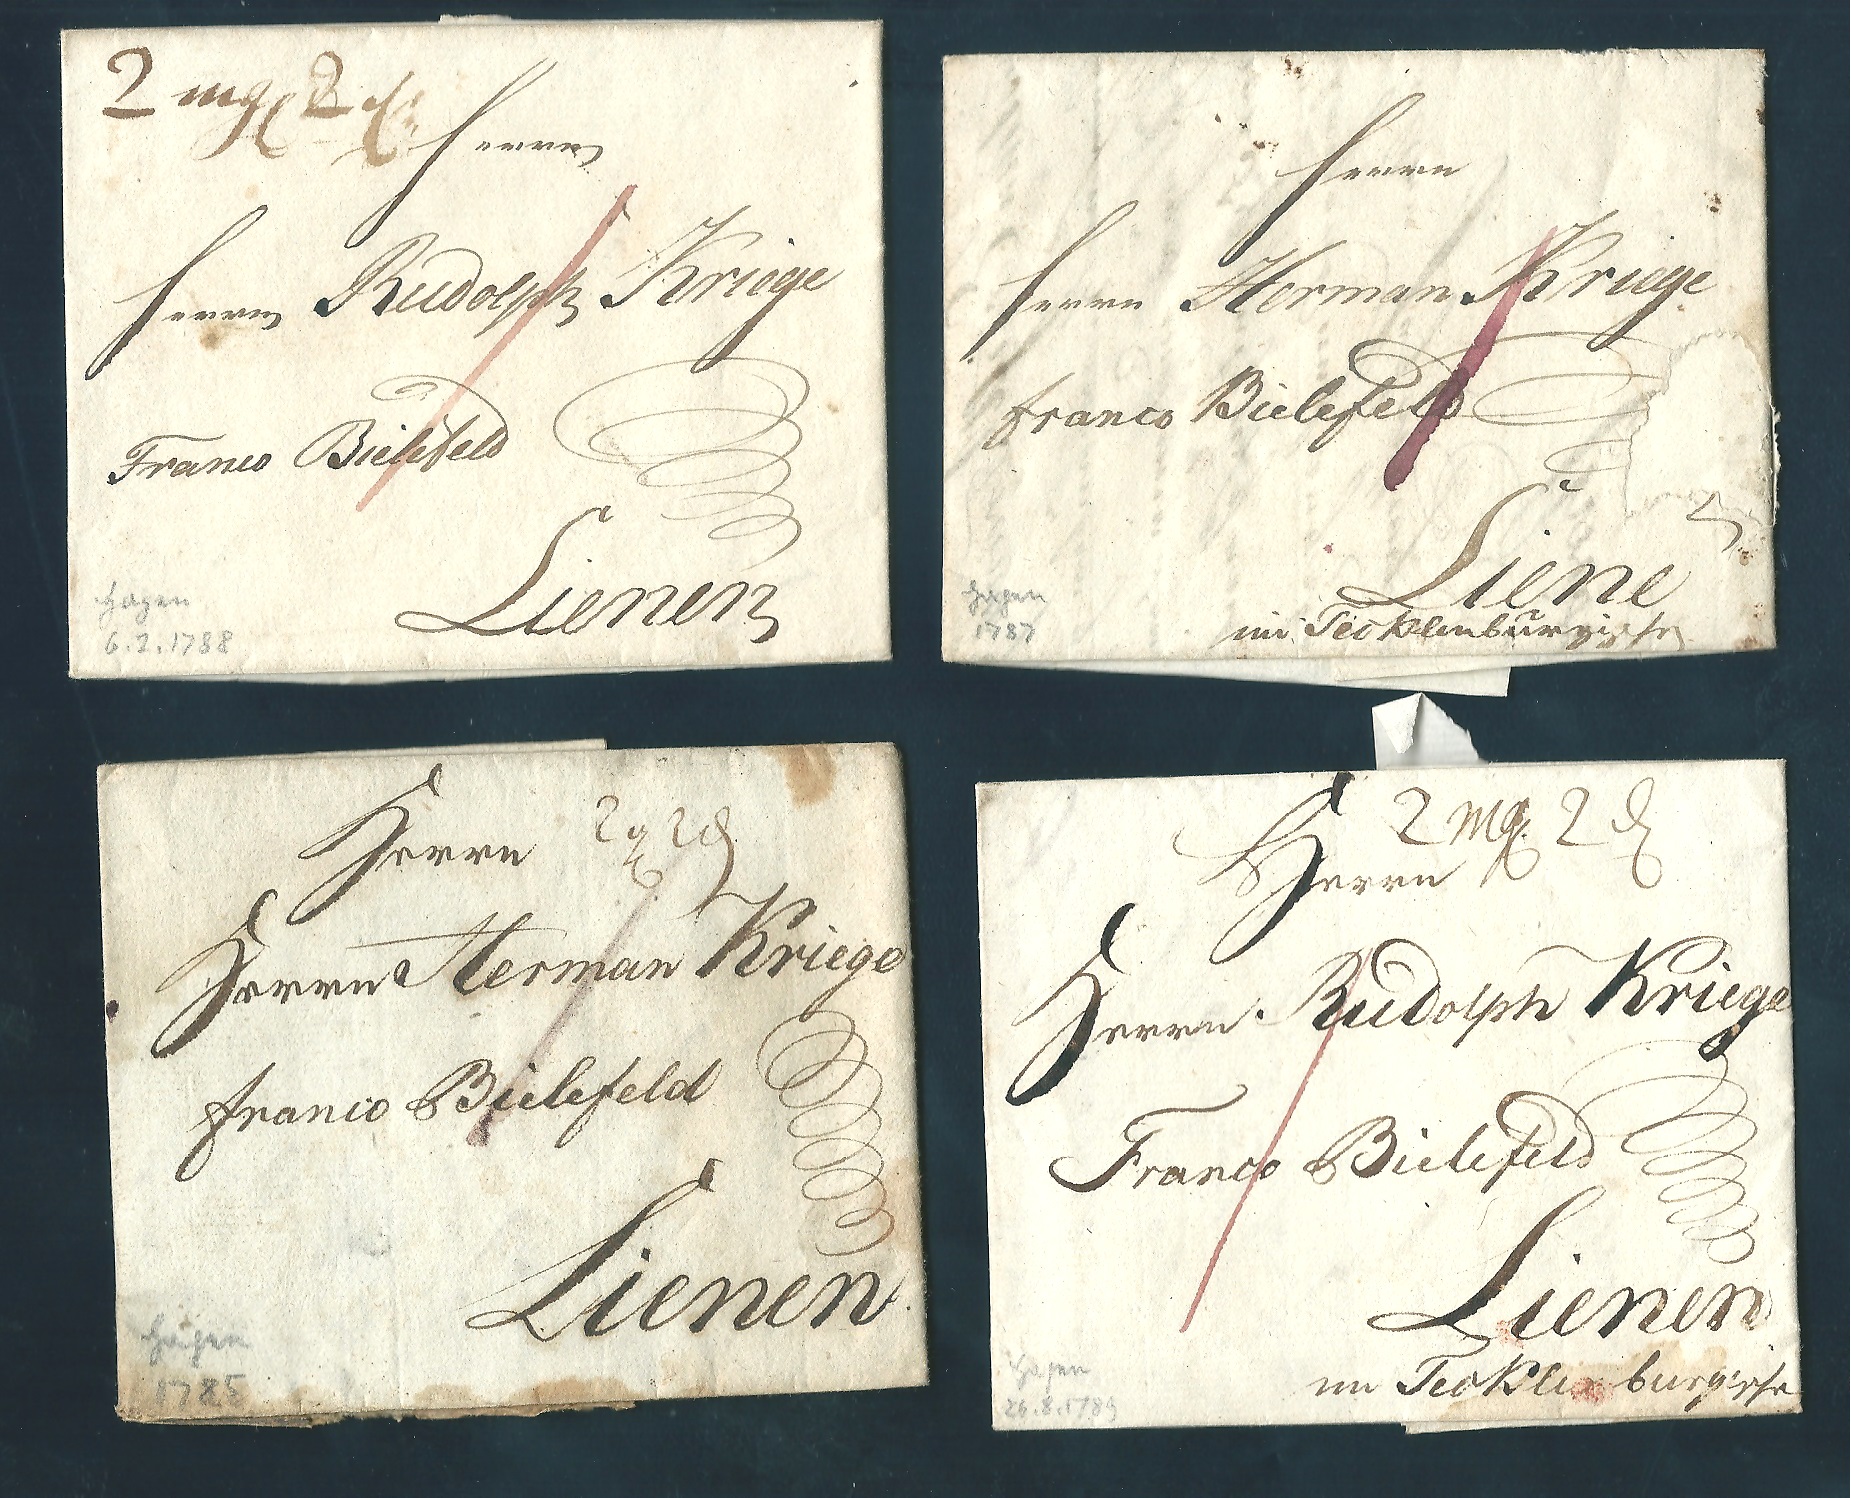 2 mg 2 d
Herrn
Herrn Rudolph Kriege
Franco Bielefeld
Lienen
Hagen
6.2.1788
Herrn
Herrn Herman Kriege
franco Bielefeld
Liene
im Tecklenburgischen
Hagen
1787
Herrn 2 g 2 d
Herrn Herman Kriege
franco Bielefeld
Lienen
Hagen
1785
2 mg 2 d
Herrn
Herrn Rudolph Kriege
Franco Bielefeld
Lienen
im Tecklenburgische
Hagen
26.8.1789